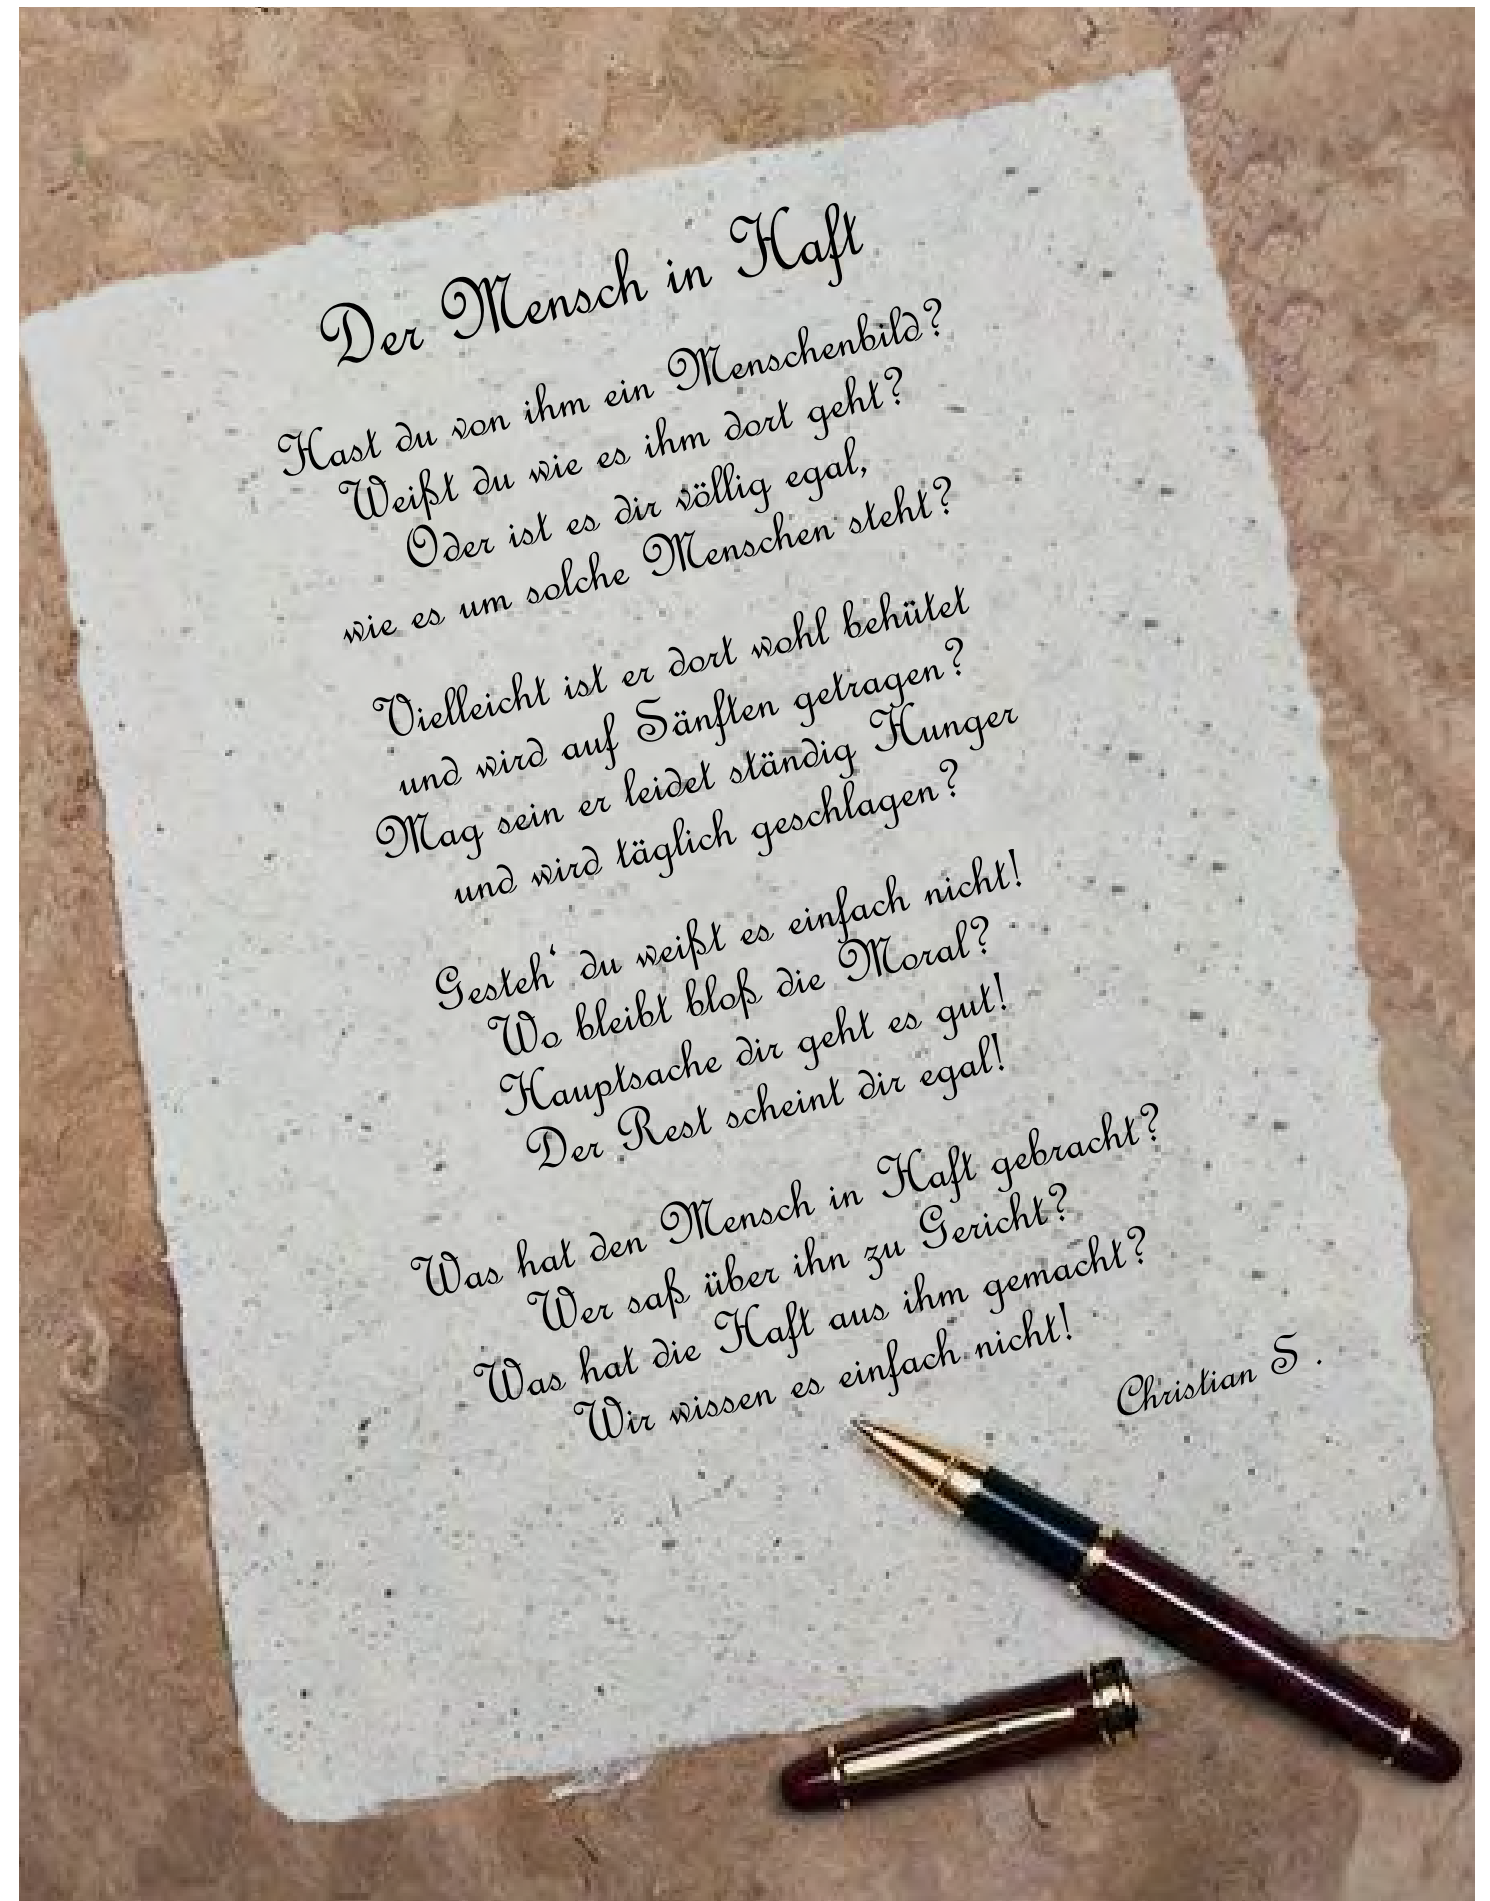 Der Mensch in Haft
Hast du von ihm ein Menschenbild?
Weißt du wie es ihm dort geht?
Oder ist es dir völlig egal,
wie es um solche Menschen steht?
Vielleicht ist er dort wohl behütet
und wird auf Sänften getragen?
Mag sein er leidet ständig Hunger
und wird täglich geschlagen?
Gesteh‘ du weißt es einfach nicht!
Wo bleibt bloß die Moral?
Hauptsache dir geht es gut!
Der Rest scheint dir egal!
Was hat den Mensch in Haft gebracht?
Wer saß über ihn zu Gericht?
Was hat die Haft aus ihm gemacht?
Wir wissen es einfach nicht!
Christian S .